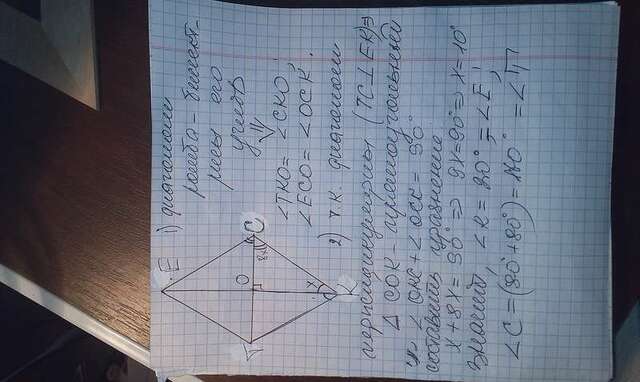 E
T
C
O
K
x
8x
1) диагонали
ромба - биссект-
рисы его
углов
⇓
∠TKO = ∠CKO,
∠ECO = ∠OCK.
2) т.к. диагонали
перпендикулярны (TC⊥EK)⇒
△COK - прямоугольный
∠OKC + ∠OCK = 90°
составить уравнение
x + 8x = 90° ⇒ 9x = 90° ⇒ x = 10°
Значит, ∠K = 20° = ∠E,
∠C = (80° + 80°) = 160° = ∠T